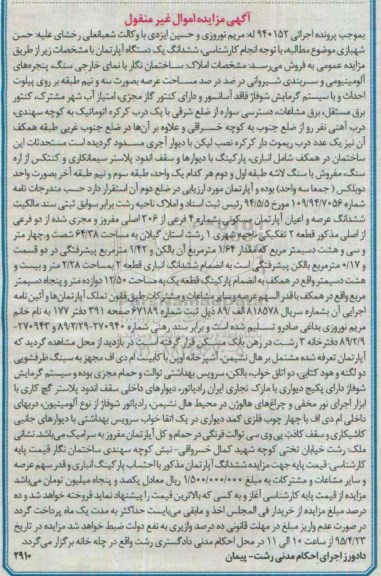 آگهی مزایده اموال غیر منقول
بموجب پرونده اجرائی ۹۴۰۱۵۲ له: مریم نوروزی و حسین ایزدی با وکالت شعبانعلی رخشای علیه: حسن
شهبازی موضوع مطالبه، با توجه انجام کارشناسی، ششدانگ یک دستگاه آپارتمان با مشخصات زیر از طریق
مزایده عمومی به فروش می‌رسد: مشخصات املاک: ساختمان نگار با نمای خارجی سنگ، پنجره‌های
آلومینیومی و سربندی شیروانی در صد در صد مساحت عرصه بصورت سه و نیم طبقه بر روی پیلوت
احداث و با سیستم گرمایش شوفاژ فاقد آسانسور و دارای کنتور گاز مجزی، امتیاز آب شهر مشترک، کنتور
برق مستقل، برق مشاعات، دسترسی سواره از ضلع شرقی با یک درب کرکره اتوماتیک به کوچه سهندی،
درب آهنی نفر رو از ضلع جنوب به کوچه خسراقی و علاوه بر آن‌ها در ضلع جنوب غربی طبقه همکف
آن نیز یک عدد درب ریموت دار کرکره نصب لیکن با دیوار آجری مسدود گردیده است مستحدثات این
ساختمان در همکف شامل انباری، پارکینگ با دیوارها و سقف اندود پلاستر سیمانکاری و کنتکس از اره
سنگ، مفروش با سنگ لاشه طبقه اول و دوم هر کدام یک واحد، طبقه سوم و نیم طبقه آخر بصورت واحد
دوبلکس (جمعا سه واحد) بوده و آپارتمان مورد ارزیابی در ضلع دوم آن استقرار دارد حسب مندرجات نامه
شماره ۱۰۹/۹۴/۷۰۵۶ مورخ ۹۴/۵/۵ رئیس ثبت اسناد و املاک ناحیه رشت برابر سوابق ثبتی سند مالکیت
ششدانگ عرصه و اعیان آپارتمان مسکونی بشماره ۴ فرعی از ۳۰۶ اصلی مفروز و مجزی شده از دو فرعی
از اصلی مذکور قطعه ۲ تفکیکی ناحیه شهری ۱ رشت استان گیلان به مساحت ۶۴/۳۸ شصت و چهار متر
و سی و هشت دسیمتر مربع که مقدار ۱/۶۴ مترمربع آن بالکن و ۱/۴۲ مترمربع پیشرفتگی در دو قسمت
و ۰/۱۷ مترمربع بالکن پیشرفتگی است به انضمام ششدانگ انباری قطعه ۲ بمساحت ۲/۲۸ متر و بیست و
هشت دسیمتر واقع در همکف به انضمام پارکینگ قطعه یک به مساحت ۱۲/۵۰ دوازده متر و پنجاه دسیمتر
مربع واقع در همکف با قدر السهم از عرصه و سایر مشاعات و مشترکات طبق قانون تملک آپارتمان‌ها و آئین نامه
اجرایی آن بشماره سریال ۸۱۸۵۷۸ الف ۸۹ ذیل ثبت شماره ۶۷۱۸۹ صفحه ۳۹۱ دفتر ۱۷۷ به نام خانم
مریم نوروزی بداغی صادره و تسلیم شده است و برابر سند رهنی شماره ۲۷۰۹۴۰-۸۹/۲/۲۹ و ۲۷۰۹۴۳-
۸۹/۲/۹ دفترخانه ۳ رشت در رهن بانک مسکن قرار گرفته است در بازدید از محل مشاهده گردید که
آپارتمان تعرفه شده مشتمل بر هال نشیمن، آشپزخانه اوپن با کابینت ام دی اف مجهز به سینک ظرفشویی
دو لگنه و هود کتابی، دو اتاق خواب، بالکن، سرویس بهداشتی توالت و حمام مجزی بوده و سیستم گرمایش
شوفاژ دارای پکیج دیواری با مارک تجاری ایران رادیاتور، دیوارهای داخلی سقف اندود پلاستر گچ کاری با
ابزار اجرای نور مخفی و چراغ‌های هالوژن در محیط هال نشیمن، رادیاتور شوفاژ از نوع آلومینیون، درب‌های
داخلی ام دی اف با چهار چوب فلزی کمد دیواری در یک اتاقا خواب سرویس بهداشتی با دیوارهای جانبی
کاشیکاری و سقف کاذب پی وی سی توالت فرنگی در حمام و کل آپارتمان مفروز به سرامیک می‌باشد نشانی
ملک: رشت خیابان تختی کوچه شهید کمال خسروقی- نبش کوچه سهندی ساختمان نگار قیمت پایه
کارشناسی: قیمت پایه جهت مزایده ششدانگ آپارتمان مذکور با احتساب پارکینگ انباری و قدر سهم عرصه
و سایر مشاعات و مشترکات به مبلغ ۱/۵۰۰/۰۰۰/۰۰۰ ریال معادل یکصد و پنجاه میلیون تومان می‌باشد
مزایده از قیمت پایه کارشناسی آغاز و به کسی که بالاترین قیمت را پیشنهاد نماید فروخته خواهد شد و ده
درصد مبلغ مزایده از خریدار فی المجلس اخذ و مابقی می‌بایست حداکثر به مدت یک ماه پرداخت گردد
در صورت عدم واریز مبلغ در مهلت قانونی ده درصد واریزی به نفع دولت ضبط خواهد شد مزایده در تاریخ
۹۵/۴/۲۳ از ساعت ۱۰ الی ۱۱ در محل احکام مدنی دادگستری رشت واقع در چله خانه برگزار می‌گردد.
دادورز اجرای احکام مدنی رشت- پیمان ۲۹۱۰